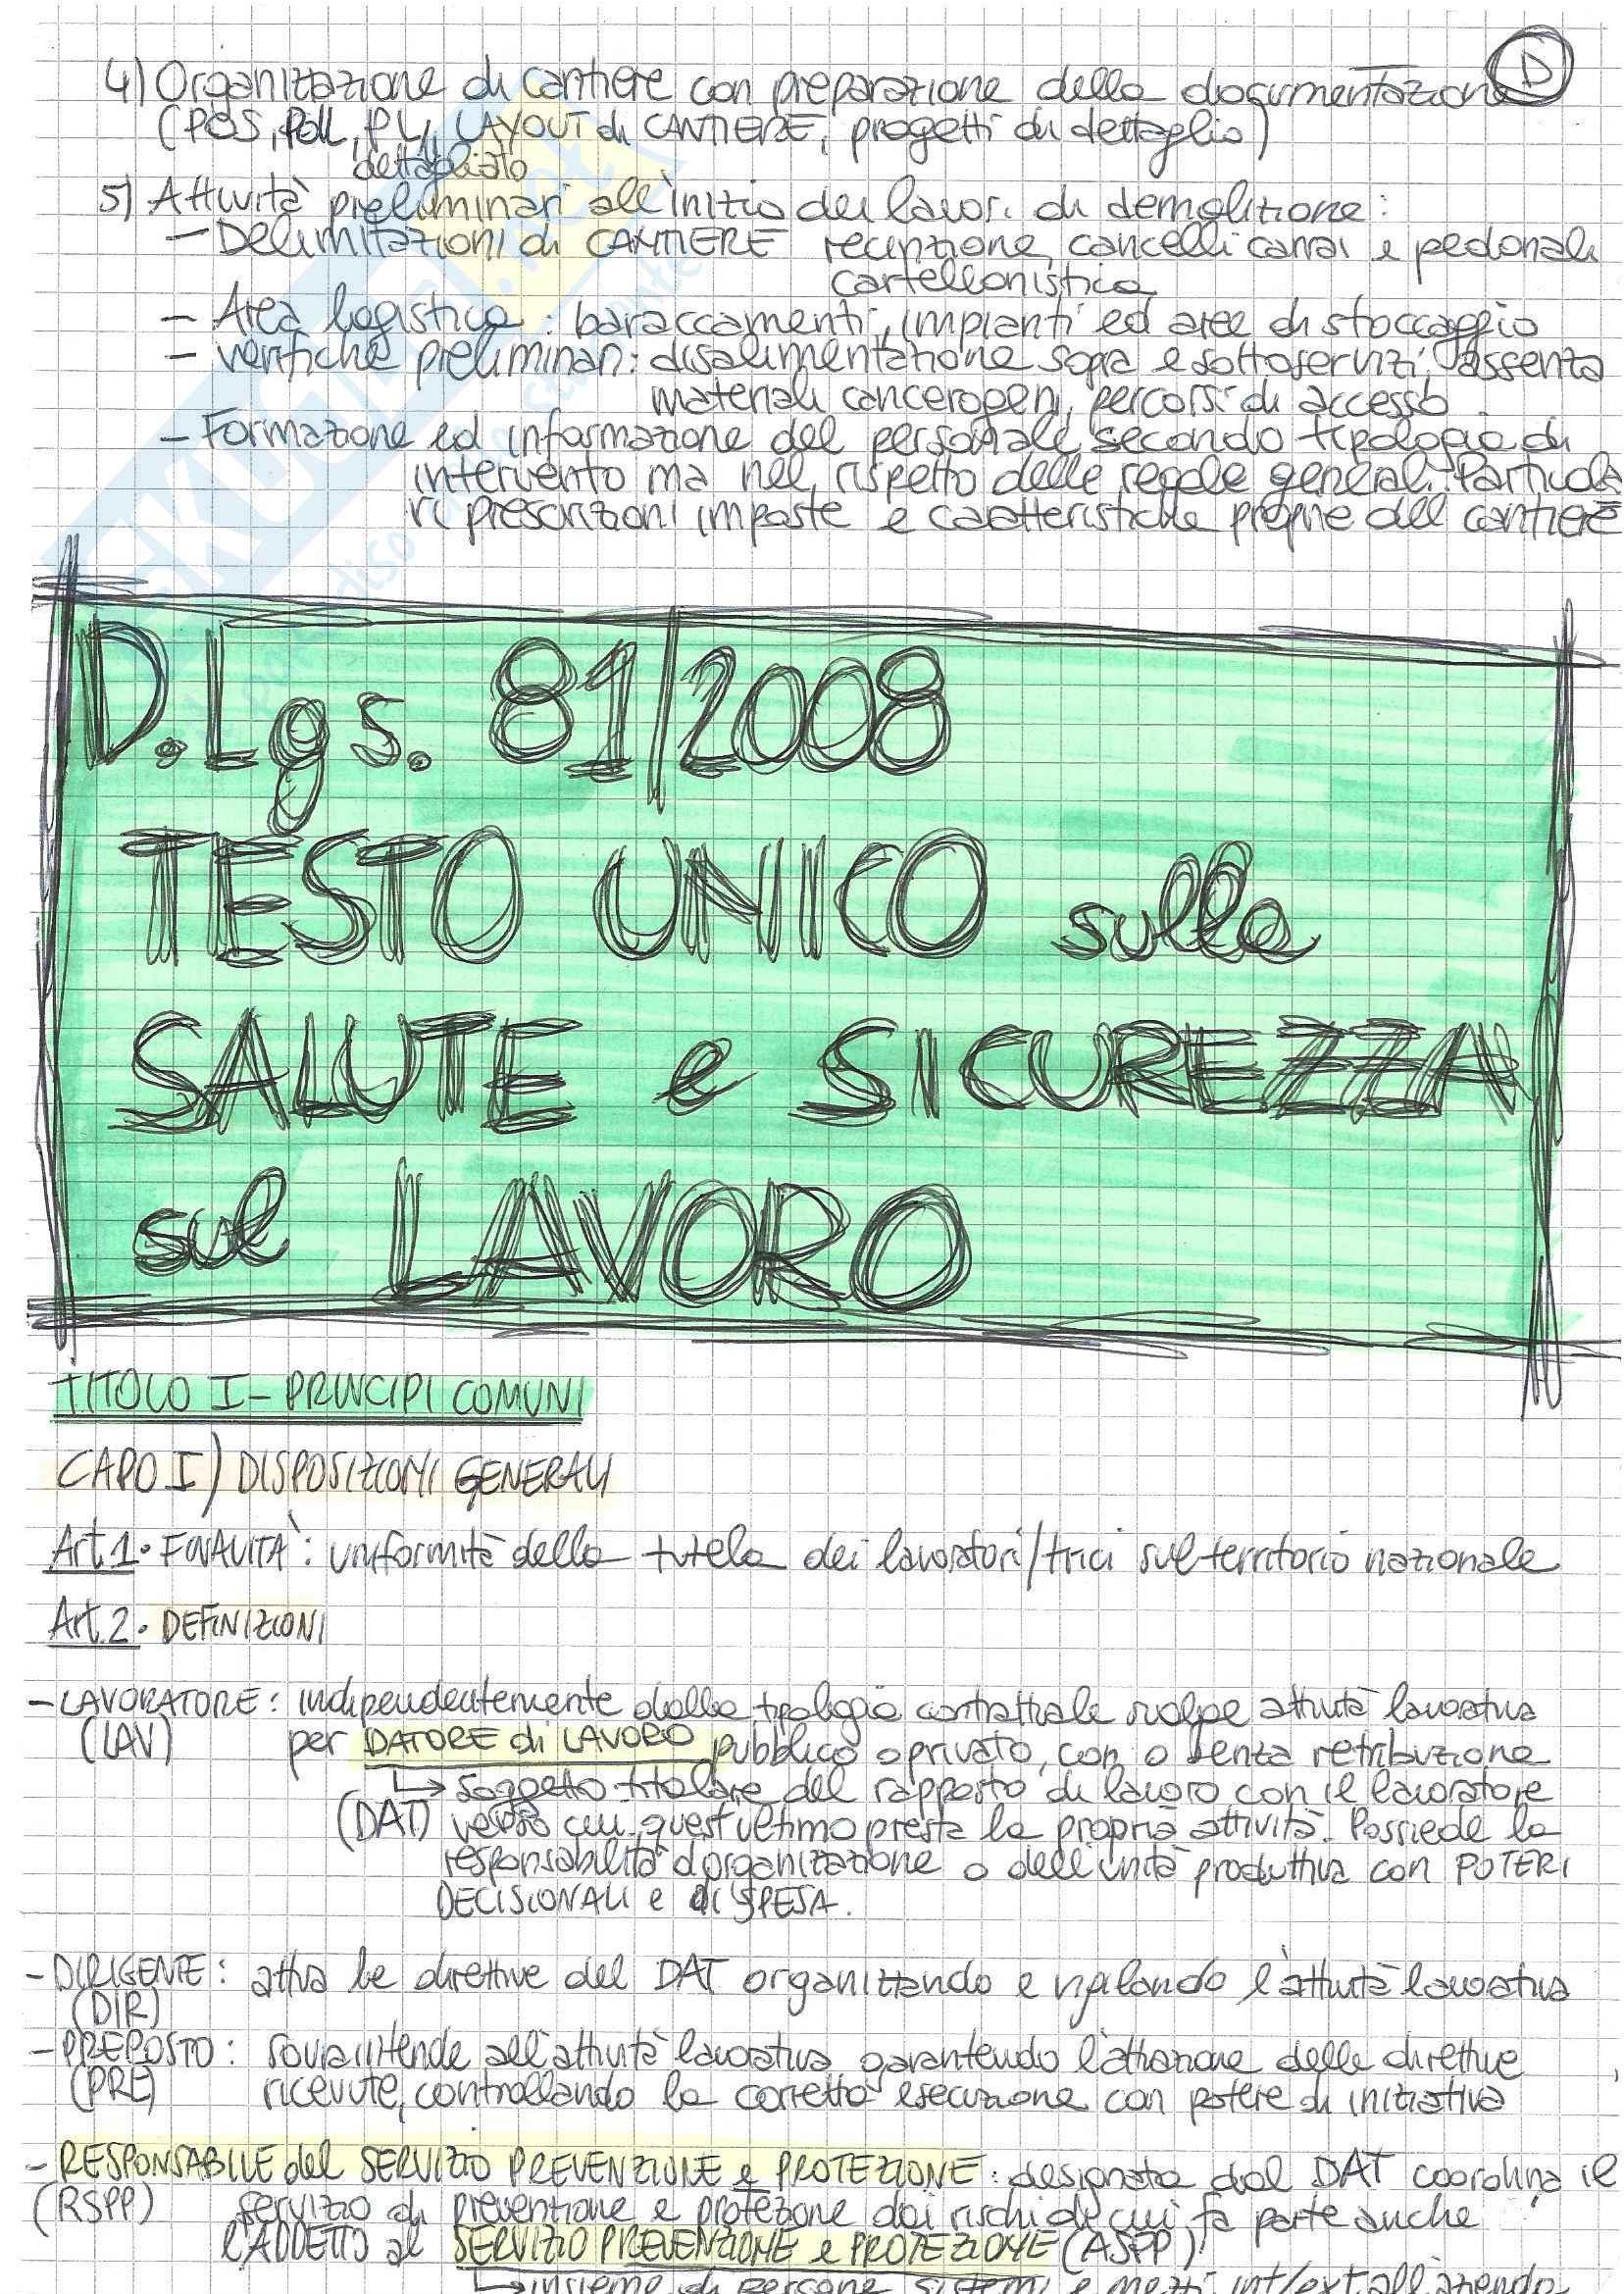 D
4) Organizzazione di cantiere con preparazione della documentazione
(POS, PDL, PL, LAYOUT di CANTIERE, progetti di dettaglio)
dettagliato
5) Attività preliminari all'inizio dei lavori di demolizione:
- Delimitazioni di CANTIERE recinzione, cancelli carrai e pedonali
cartellonistica
- Area logistica: baraccamenti, impianti ed aree di stoccaggio
- verifiche preliminari: disalimentazione sopra e sottoservizi, assenza
materiali cancerogeni, percorsi di accesso.
- Formazione ed informazione del personale secondo tipologia di
intervento ma nel rispetto delle regole generali. Particola
ri prescrizioni imposte e caratteristiche proprie del cantiere
D.Lgs. 81/2008
TESTO UNICO sulla
SALUTE e SICUREZZA
sul LAVORO
TITOLO I - PRINCIPI COMUNI
CAPO I) DISPOSIZIONI GENERALI
Art.1. FINALITÀ: uniformità della tutela dei lavoratori/trici sul territorio nazionale
Art.2. DEFINIZIONI
- LAVORATORE: indipendentemente dalla tipologia contrattuale svolge attività lavorativa
(LAV) per DATORE di LAVORO pubblico o privato, con o senza retribuzione
↳ soggetto titolare del rapporto di lavoro con il lavoratore
(DAT) verso cui quest'ultimo presta la propria attività. Possiede la
responsabilità d'organizzazione o dell'unità produttiva con POTERI
DECISIONALI e di SPESA.
- DIRIGENTE: attua le direttive del DAT organizzando e vigilando l'attività lavorativa
(DIR)
- PREPOSTO: sovraintende all'attività lavorativa garantendo l'attuazione delle direttive
(PRE) ricevute, controllando la corretta esecuzione con potere di iniziativa
- RESPONSABILE del SERVIZIO PREVENZIONE e PROTEZIONE: designato dal DAT coordina il
(RSPP) servizio di prevenzione e protezione dai rischi di cui fa parte anche
l'ADDETTO al SERVIZIO PREVENZIONE e PROTEZIONE (ASPP)
↳ insieme di persone sistemi e mezzi int/ext all'azienda